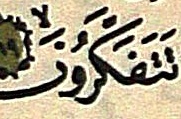 تَتَفَكَّرُونَ